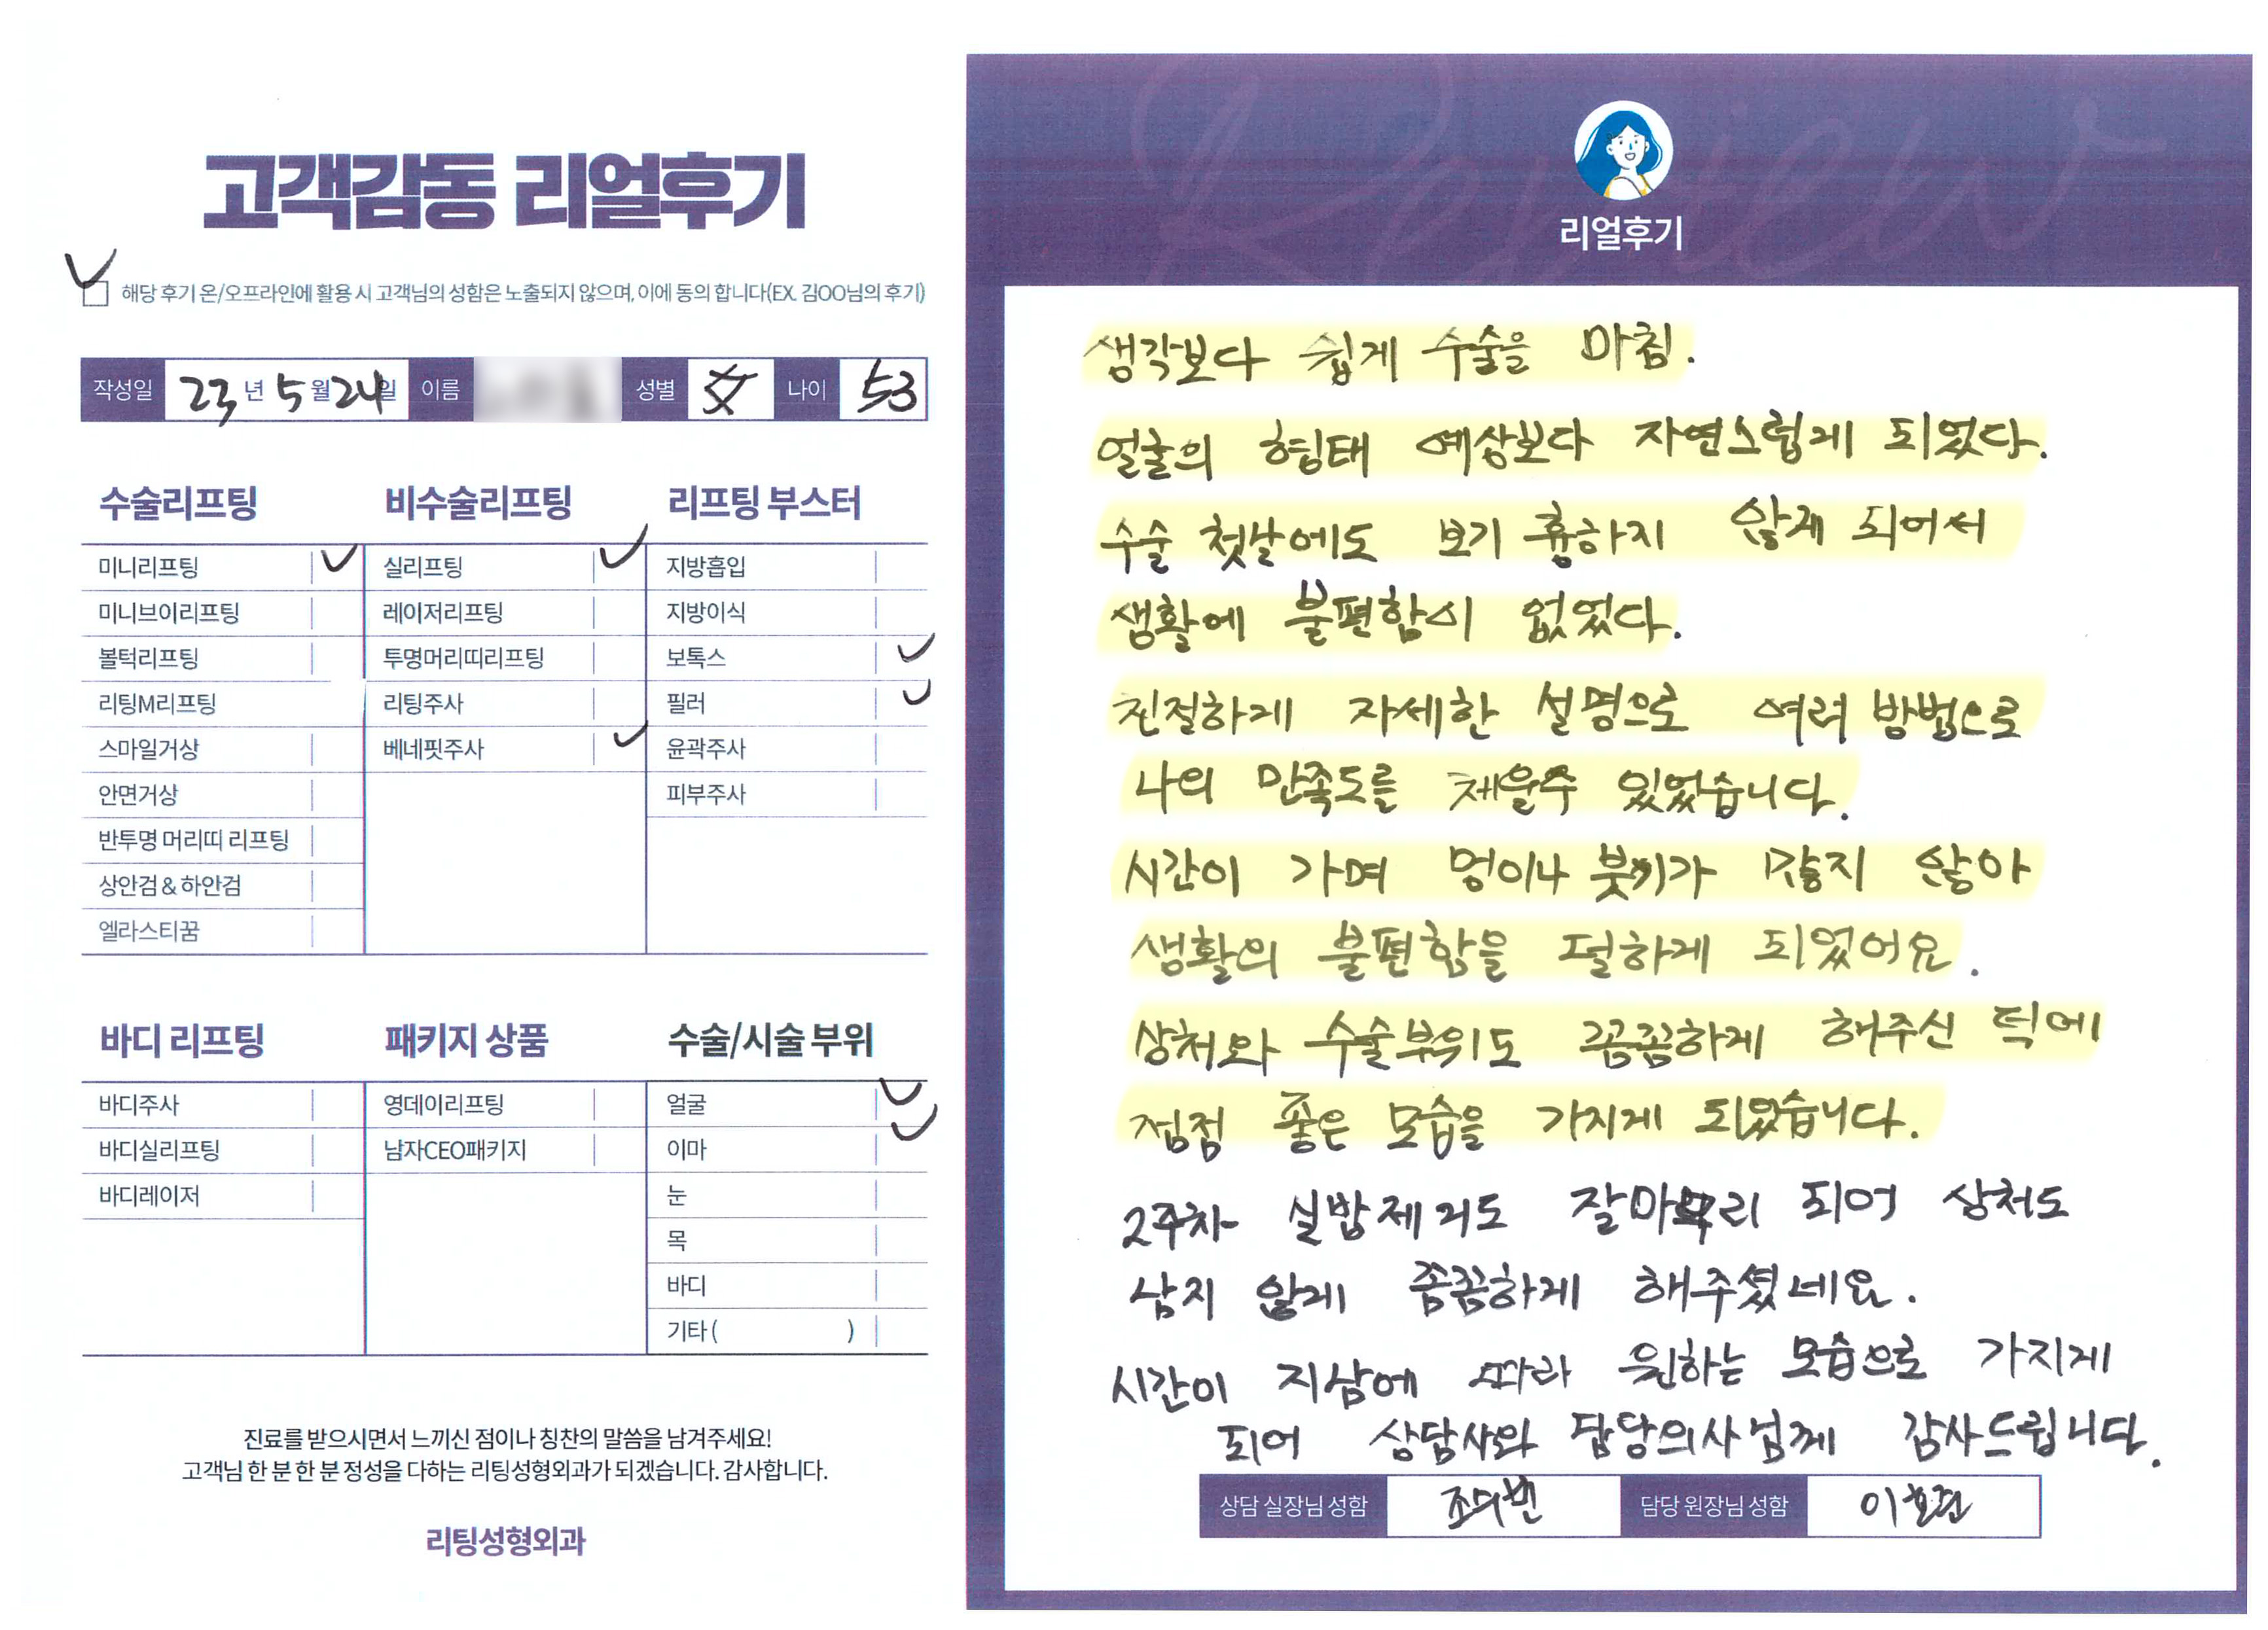 고객감동 리얼후기
해당 후기 온/오프라인에 활용 시 고객님의 성함은 노출되지 않으며, 이에 동의 합니다(EX. 김OO님의 후기)
작성일 23년 5월 24일 이름 성별 나이 53
수술리프팅
미니리프팅
미니브이리프팅
볼턱리프팅
리팅M리프팅
스마일거상
안면거상
반투명 머리띠 리프팅
상안검 & 하안검
엘라스티꿈
비수술리프팅
실리프팅
레이저리프팅
투명머리띠리프팅
리팅주사
베네핏주사
리프팅 부스터
지방흡입
지방이식
보톡스
필러
윤곽주사
피부주사
바디 리프팅
바디주사
바디실리프팅
바디레이저
패키지 상품
영데이리프팅
남자CEO패키지
수술/시술 부위
얼굴
이마
눈
목
바디
기타 ( )
진료를 받으시면서 느끼신 점이나 칭찬의 말씀을 남겨주세요!
고객님 한 분 한 분 정성을 다하는 리팅성형외과가 되겠습니다. 감사합니다.
리팅성형외과
Review
리얼후기
생각보다 쉽게 수술을 마침.
얼굴의 형태 예상보다 자연스럽게 되었다.
수술 첫날에도 보기 흉하지 않게 되어서
생활에 불편함이 없었다.
친절하게 자세한 설명으로 여러 방법으로
나의 만족도를 채울수 있었습니다.
시간이 가며 멍이나 붓기가 많지 않아
생활의 불편함을 덜하게 되었어요.
상처와 수술부위도 꼼꼼하게 해주신 덕에
점점 좋은 모습을 가지게 되었습니다.
2주차 실밥제거도 잘마무리 되어 상처도
남지 않게 꼼꼼하게 해주셨네요.
시간이 지남에 따라 원하는 모습으로 가지게
되어 상담사와 담당의사님께 감사드립니다.
상담 실장님 성함 담당 원장님 성함